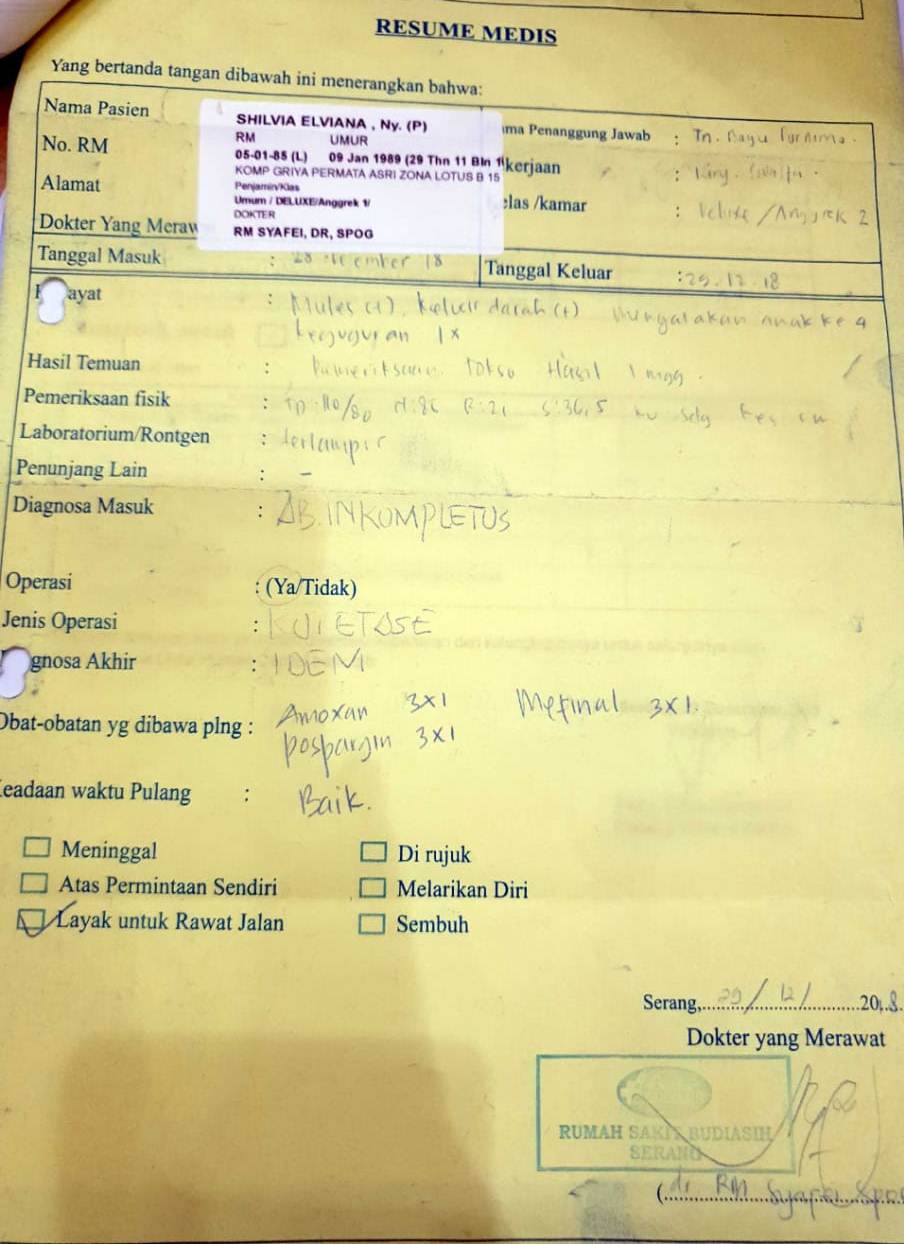 RESUME MEDIS
Yang bertanda tangan dibawah ini menerangkan bahwa:
Nama Pasien
SHILVIA ELVIANA , Ny. (P)
RM UMUR
05-01-85 (L) 09 Jan 1989 (29 Thn 11 Bln
KOMP GRIYA PERMATA ASRI ZONA LOTUS B 15
Penjamin/Klas
Umum / DELUXE/Anggrek 1/
DOKTER
RM SYAFEI, DR, SPOG
ma Penanggung Jawab : Tn. Bayu
No. RM
kerjaan : Kary. Swasta.
Alamat
elas /kamar : Deluxe / Anggrek 2
Dokter Yang Meraw
Tanggal Masuk : 28 Desember 18
Tanggal Keluar : 29.12.18
ayat : Mules (+). Keluar darah (+) Mengatakan anak ke 4
keguguran 1x
Hasil Temuan : Pemeriksaan Hasil
Pemeriksaan fisik : TD:110/80 N:86 R:21 S:36,5 ku sdg kes cm
Laboratorium/Rontgen : terlampir
Penunjang Lain : -
Diagnosa Masuk : AB.INKOMPLETUS
Operasi : (Ya/Tidak)
Jenis Operasi : KURETASE
gnosa Akhir : IDEM
Obat-obatan yg dibawa plng : Amoxan 3x1 Mefinal 3x1.
pospargin 3x1
Keadaan waktu Pulang : Baik.
Meninggal Di rujuk
Atas Permintaan Sendiri Melarikan Diri
Layak untuk Rawat Jalan Sembuh
Serang, 29/12/ 2018.
Dokter yang Merawat
RUMAH SAKIT BUDIASIH
SERANG
(dr RM Syafei Spog